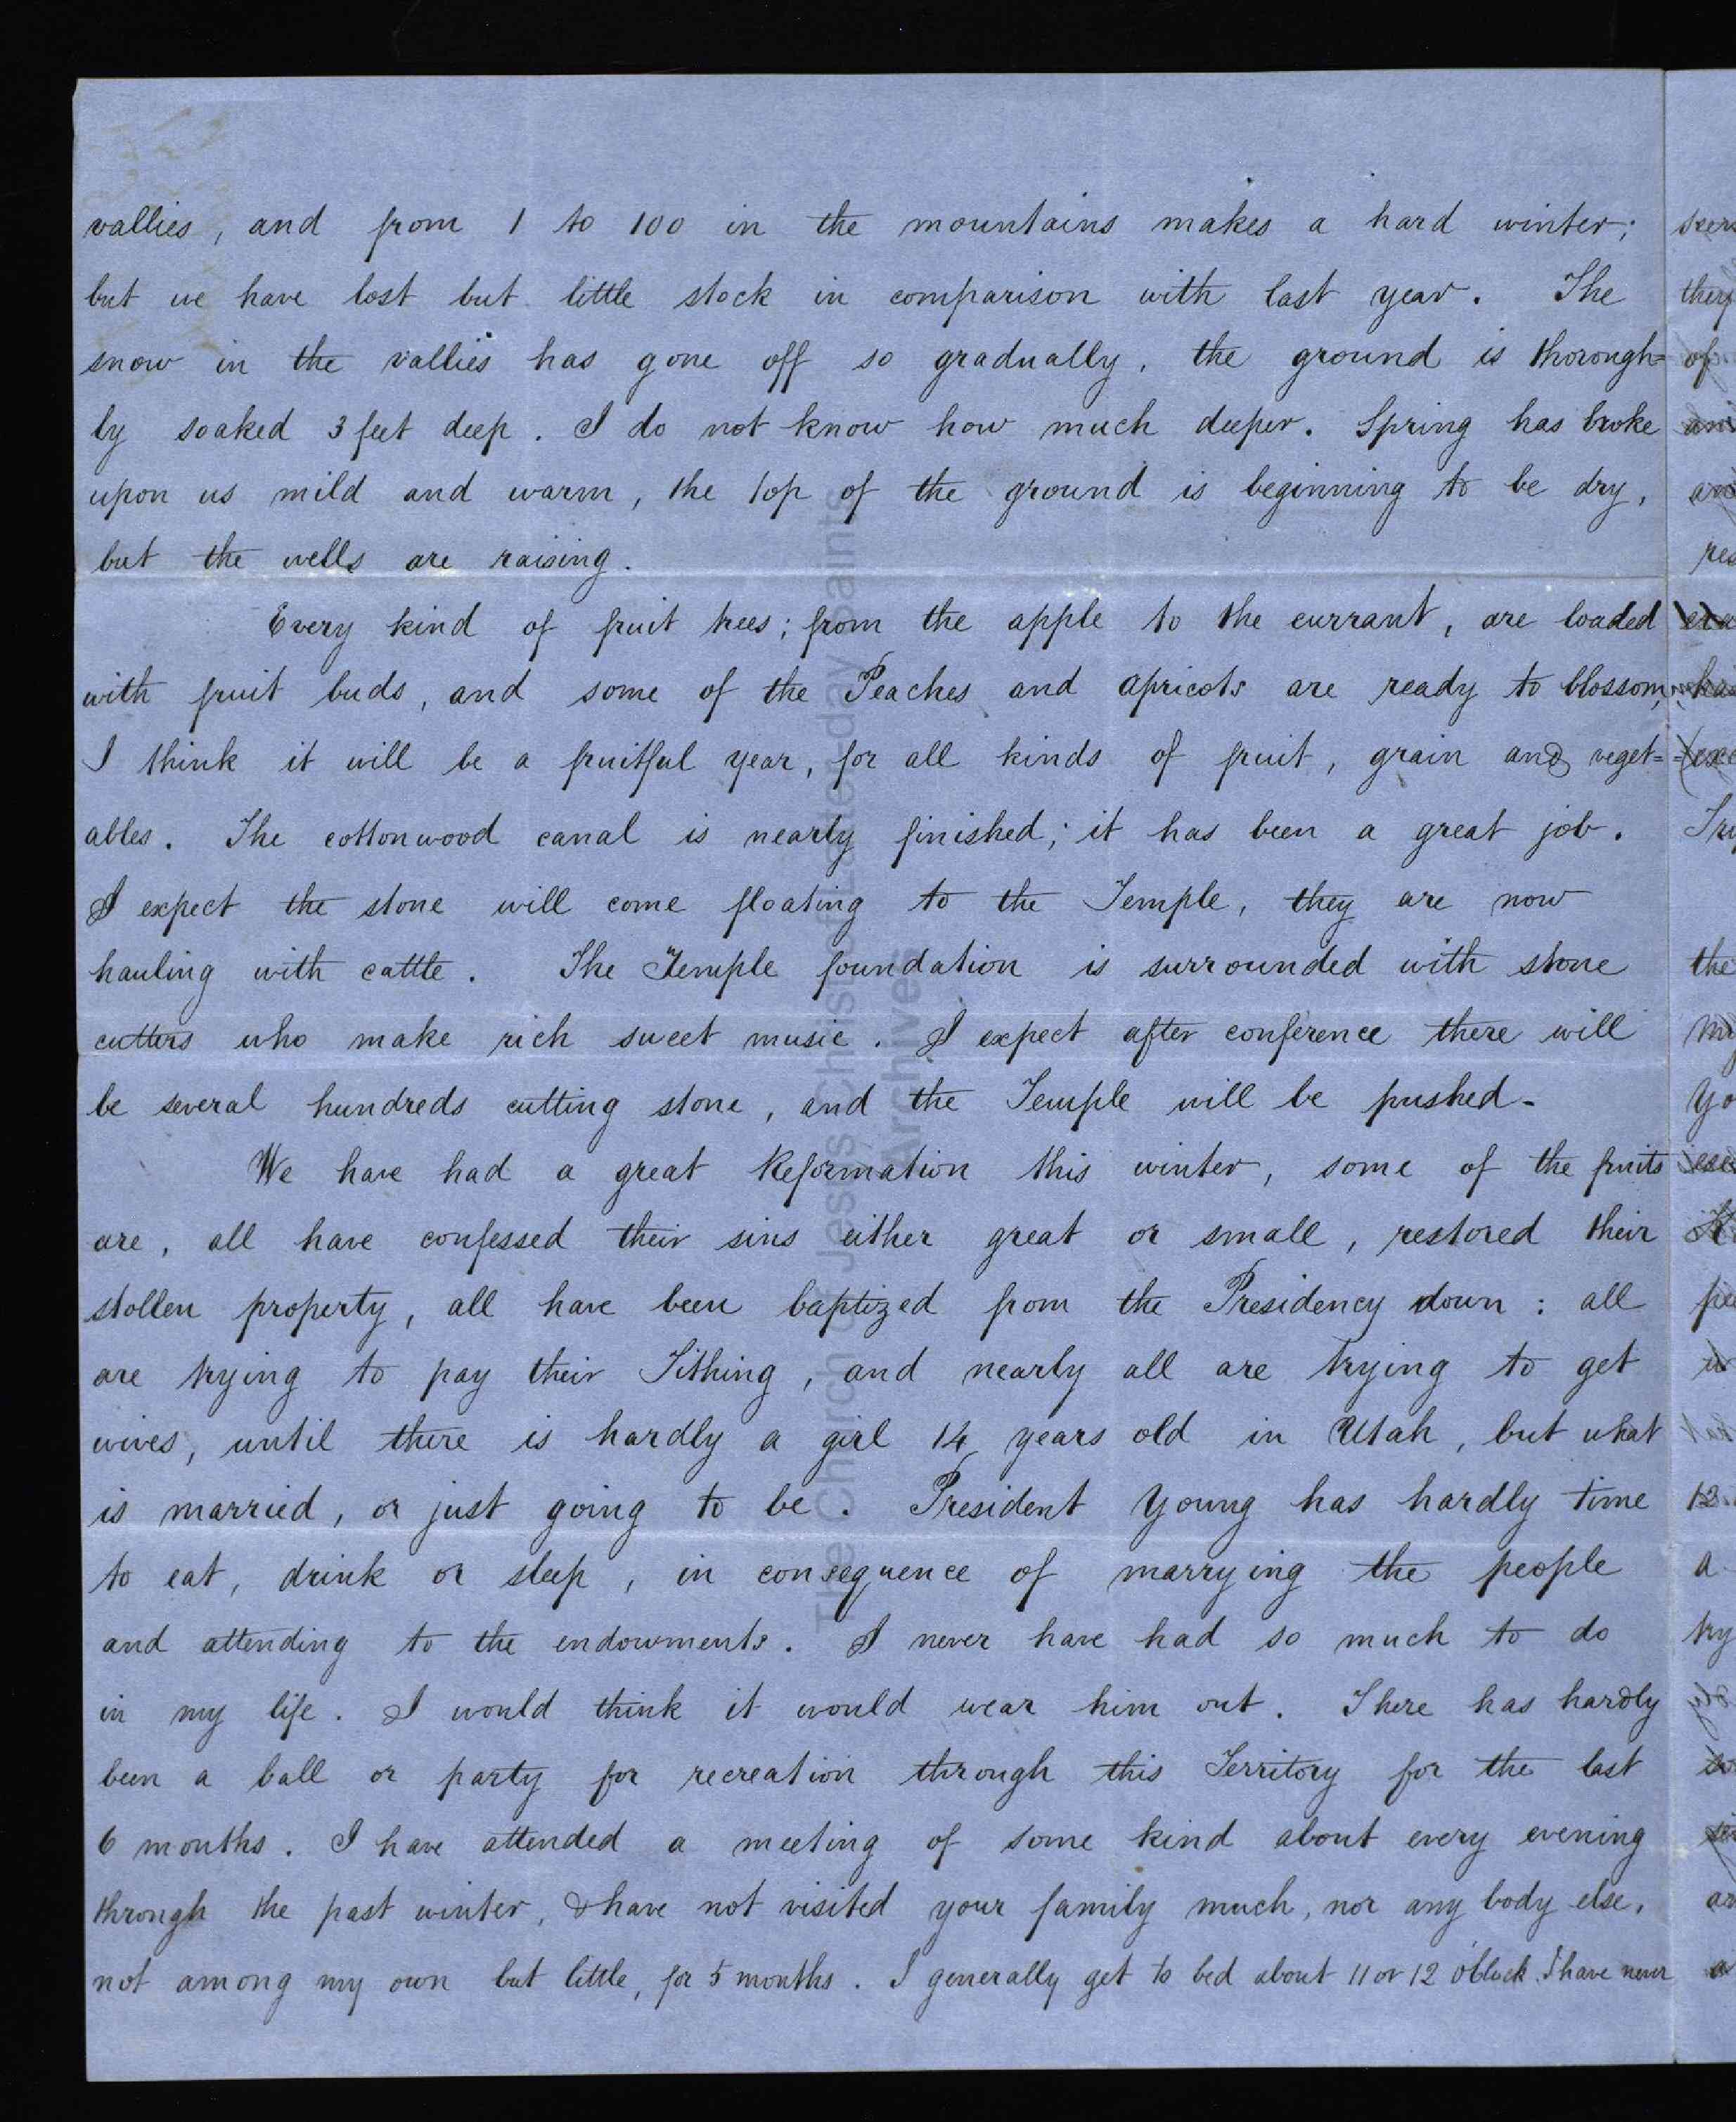 vallies, and from 1 to 100 in the mountains makes a hard winter;
but we have lost but little stock in comparison with last year. The
snow in the vallies has gone off so gradually, the ground is thorough=
ly soaked 3 feet deep. I do not know how much deeper. Spring has broke
upon us mild and warm, the top of the ground is beginning to be dry,
but the wells are raising.
Every kind of fruit trees; from the apple to the currant, are loaded
with fruit buds, and some of the Peaches and apricots are ready to blossom,
I think it will be a fruitful year, for all kinds of fruit, grain and veget=
ables. The cottonwood canal is nearly finished; it has been a great job.
I expect the stone will come floating to the Temple, they are now
hauling with cattle. The Temple foundation is surrounded with stone
cutters who make rich sweet music. I expect after conference there will
be several hundreds cutting stone, and the Temple will be pushed-
We have had a great Reformation this winter, some of the fruits
are, all have confessed their sins either great or small, restored their
stollen property, all have been baptized from the Presidency down: all
are trying to pay their Tithing, and nearly all are trying to get
wives, until there is hardly a girl 14 years old in Utah, but what
is married, or just going to be. President Young has hardly time
to eat, drink or sleep, in consequence of marrying the people
and attending to the endowments. I never have had so much to do
in my life. I would think it would wear him out. There has hardly
been a ball or party for recreation through this Territory for the last
6 months. I have attended a meeting of some kind about every evening
through the past winter, & have not visited your family much, nor any body else,
not among my own but little, for 5 months. I generally get to bed about 11 or 12 o'clock I have never
The Church of Jesus Christ of Latter-day Saints
Archives